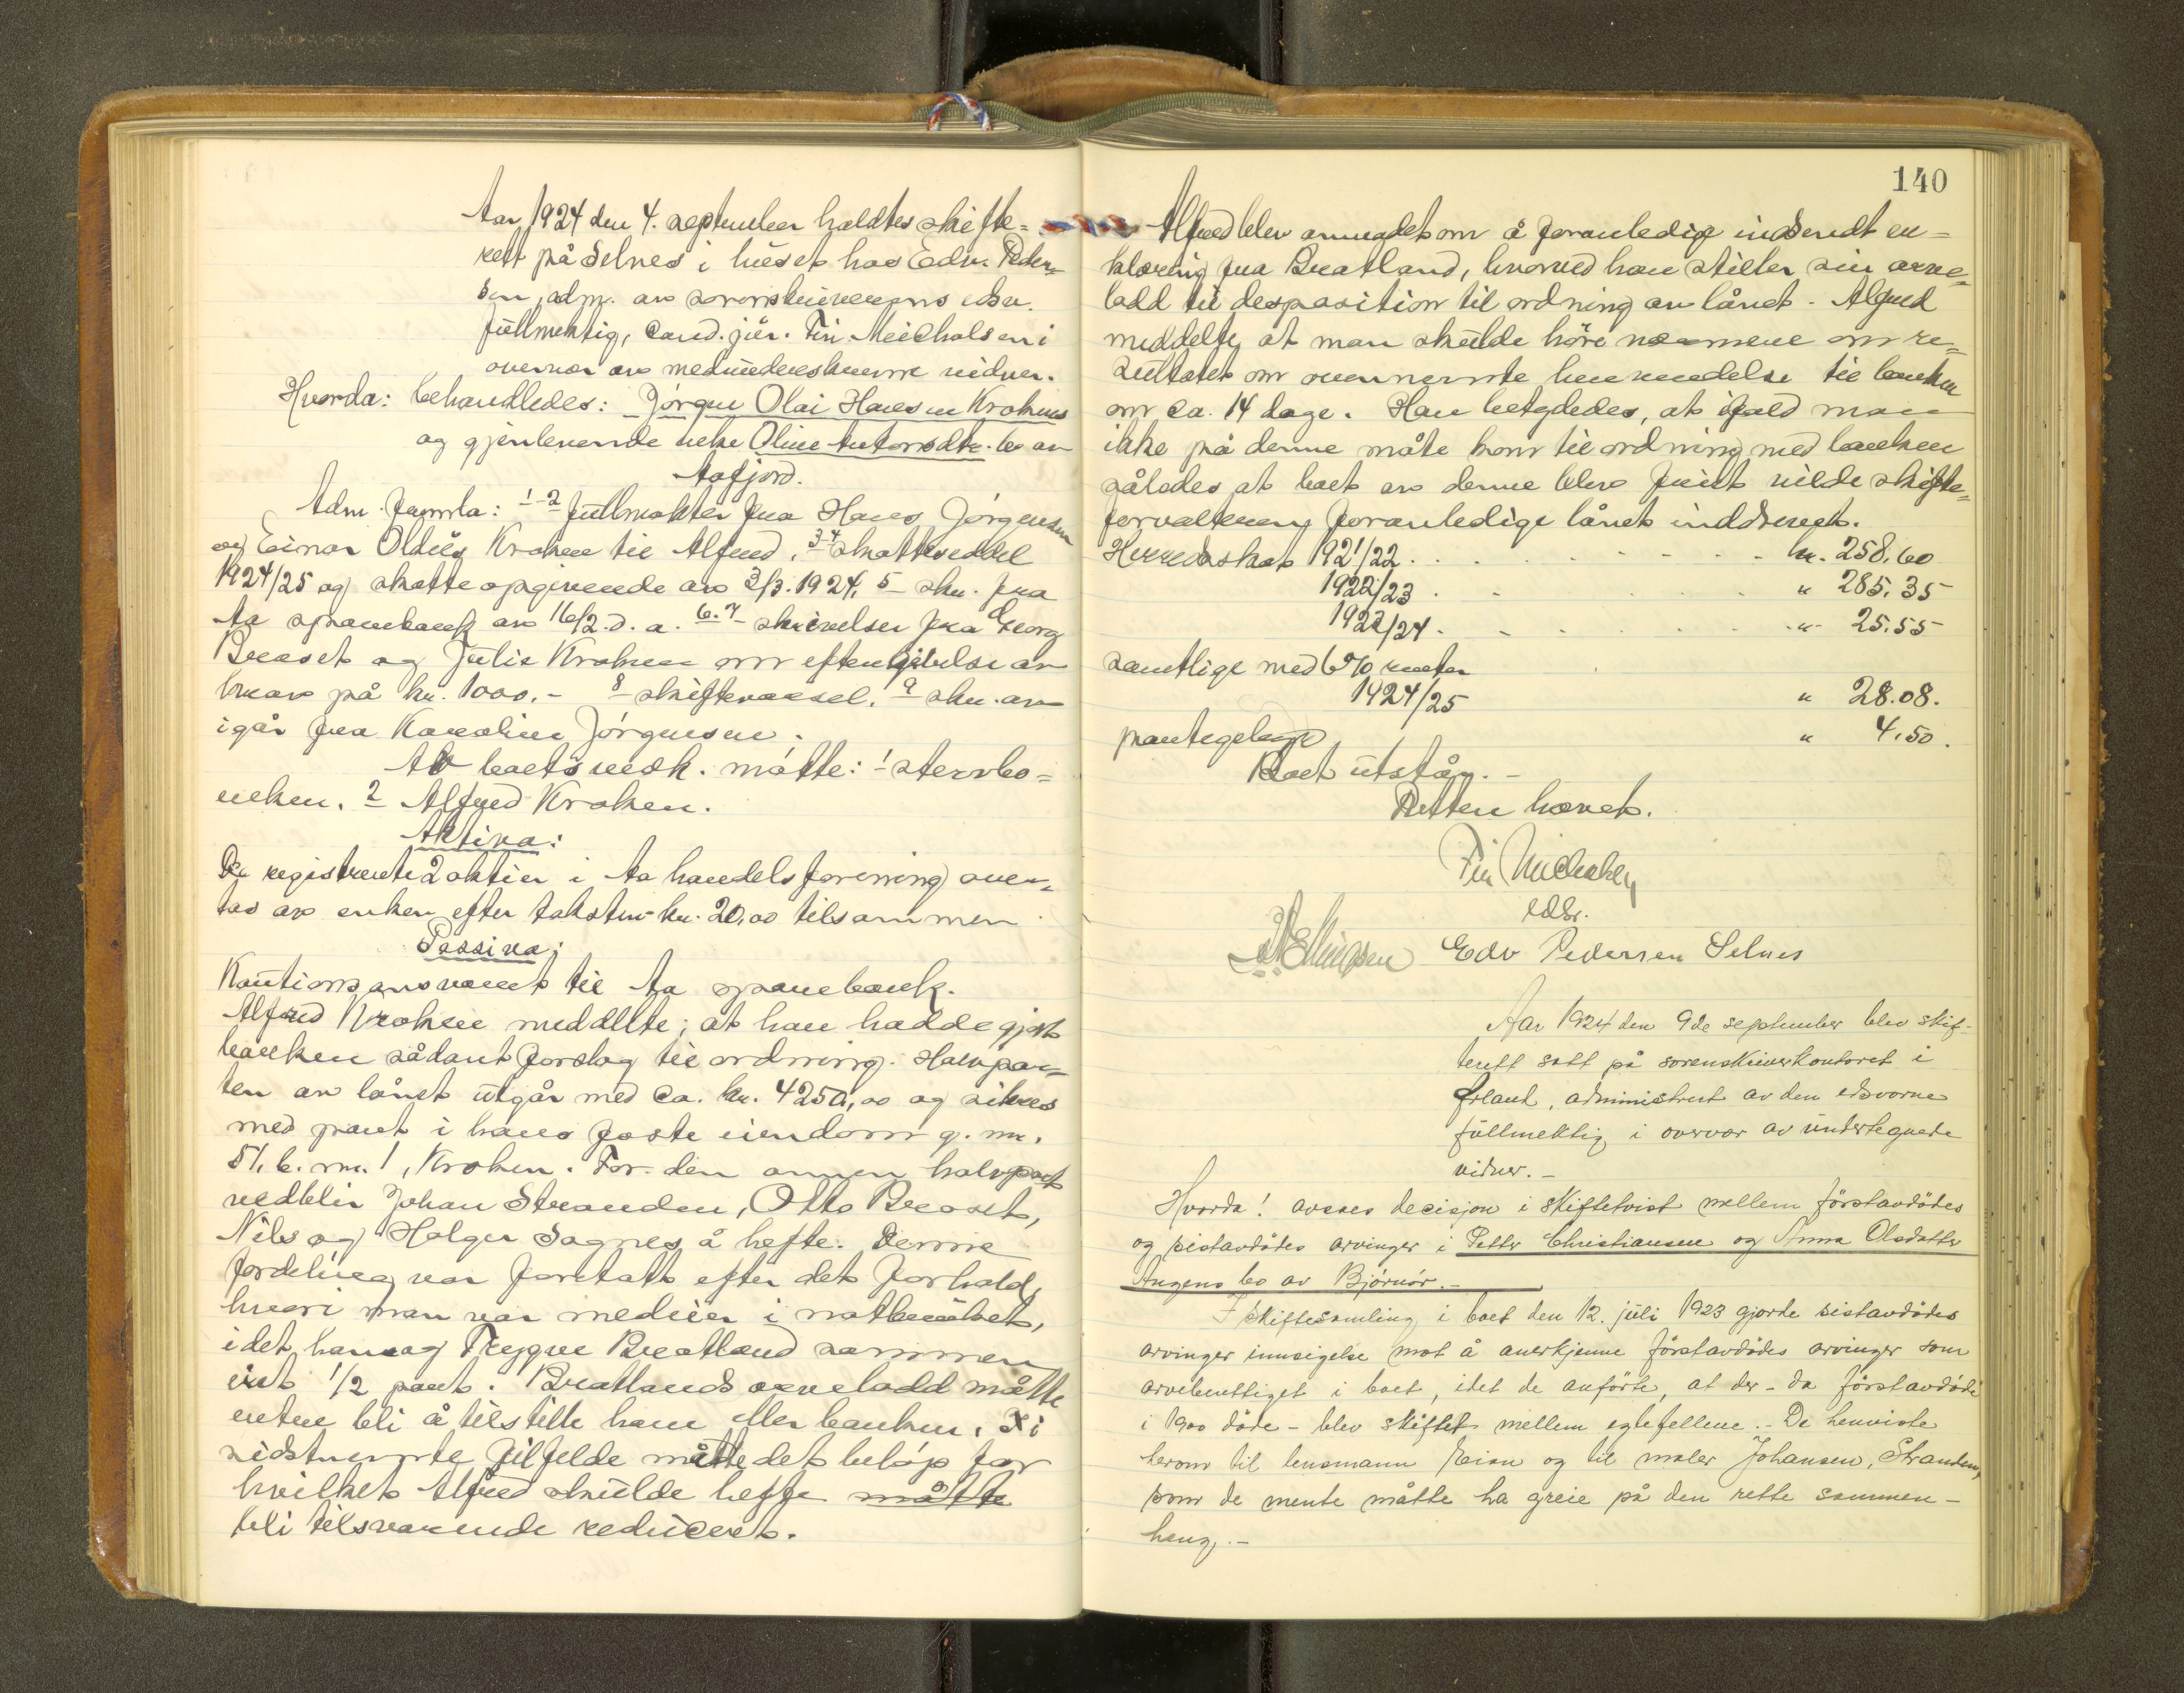 Aar 1924 den 4. september holdtes skifte=
rett på Selnes i huset hos Edv. Peder=
sen, adm. av sorenskriverens edsv.
fullmektig, cand. jur. Fin Michalsen i
overvær av medunderskrevne vidner.
Hvorda: behandledes: Jörgen Olai Hansen Krokens
og gjenlevende enke Oline Antonsdtr. bo av
Aafjord.
Adm. fremla: 1-2 fullmakter fra Hans Jörgensen
og Einar Oldius Kroken til Alfred, 3-4 skatteseddel
1924/25 og skatteopgivende av 3/3. 1924, 5 skr. fra
Aa sparebank av 16/2. d. a. 6.7 skrivelser fra Georg
Breaset og Julie Kroken om eftergivelse av
krav på kr. 1000.- 8 skiftevarsel. 9 skr. av
igår fra Karoline Jörgensen.
Av boets vedk. mötte: 1 stervbo=
enken. 2 Alfred Kroken.
Aktiva:
De registrerte 2 aktier i Aa handelsforening over=
tas av enken efter taksten kr. 20,00 tilsammen.
Passiva:
Kautionsansvaret til Aa sparebank.
Alfred Kroken meddelte, at han hadde gjort
banken sådant forslag til ordning. Halvpar=
ten av lånet utgår med ca. kr. 4250,00 og sikres
med pant i hans faste eiendom g. nr.
51, b. nr. 1, Kroken. For den annen halvpart
vedblir Johan Stranden, Otto Breaset,
Nils og Holger Sagnes å hefte. Denne
fordeling var foretatt efter det forhold,
hvori man var medeier i notbruket,
idet han og Trygve Bratland sammen
eiet 1/2 part. Bratlands arvelodd måtte
enten bli å tilstille ham eller banken. I
sidstnevnte tilfelde måtte det belöp for
hvilket Alfred skulde hefte måtte
bli tilsvarende reduceret.
140
Alfred blev anmodet om å foranledige indsendt er=
klæring fra Bratland, hvorved han stiller sin arve=
lodd til desposition til ordning av lånet. Alfred
meddelte, at man skulde höre nærmere om re=
sultatet om ovennevnte henvendelse til banken
om ca. 14 dage. Han betydedes, at ifald man
ikke på denne måte kom til ordning med banken
således at boet av denne blev friet vilde skifte=
forvalteren foranledige lånet inddrevet.
Herredsskat 1921/22 . . . . . . kr. 258,60
1922/23 . . . . " 285,35
1923/24 . . . . . " 25.55
samtlige med 6% renter
1924/25 " 28.08.
pantegebyr " 4,50.
Boet utstår. -
Retten hævet.
Fin Michalsen
edsv.
Ellingsen Edv Pedersen Selnes
Aar 1924 den 9de september blev skif-
terett satt på sorenskriverkontoret i
Ørland, administrert av den edsvorne
fullmektig i overvær av undertegnede
vidner. -
Hvorda! avsaes decisjon i skiftetvist mellem förstavdödes
og sistavdödes arvinger i Petter Christiansen og Anna Olsdatter
Angens bo av Björnör. -
I skiftesamling i boet den 12. juli 1923 gjorde sistavdödes
arvinger innsigelse mot å anerkjenne förstavdödes arvinger som
arveberettiget i boet, idet de anförte, at der - da förstavdöde
i 1900 döde - blev skiftet mellem egtefellene. - De henviste
herom til lensmann Eian og til maler Johansen, Stranden,
som de mente måtte ha greie på den rette sammen-
heng. -